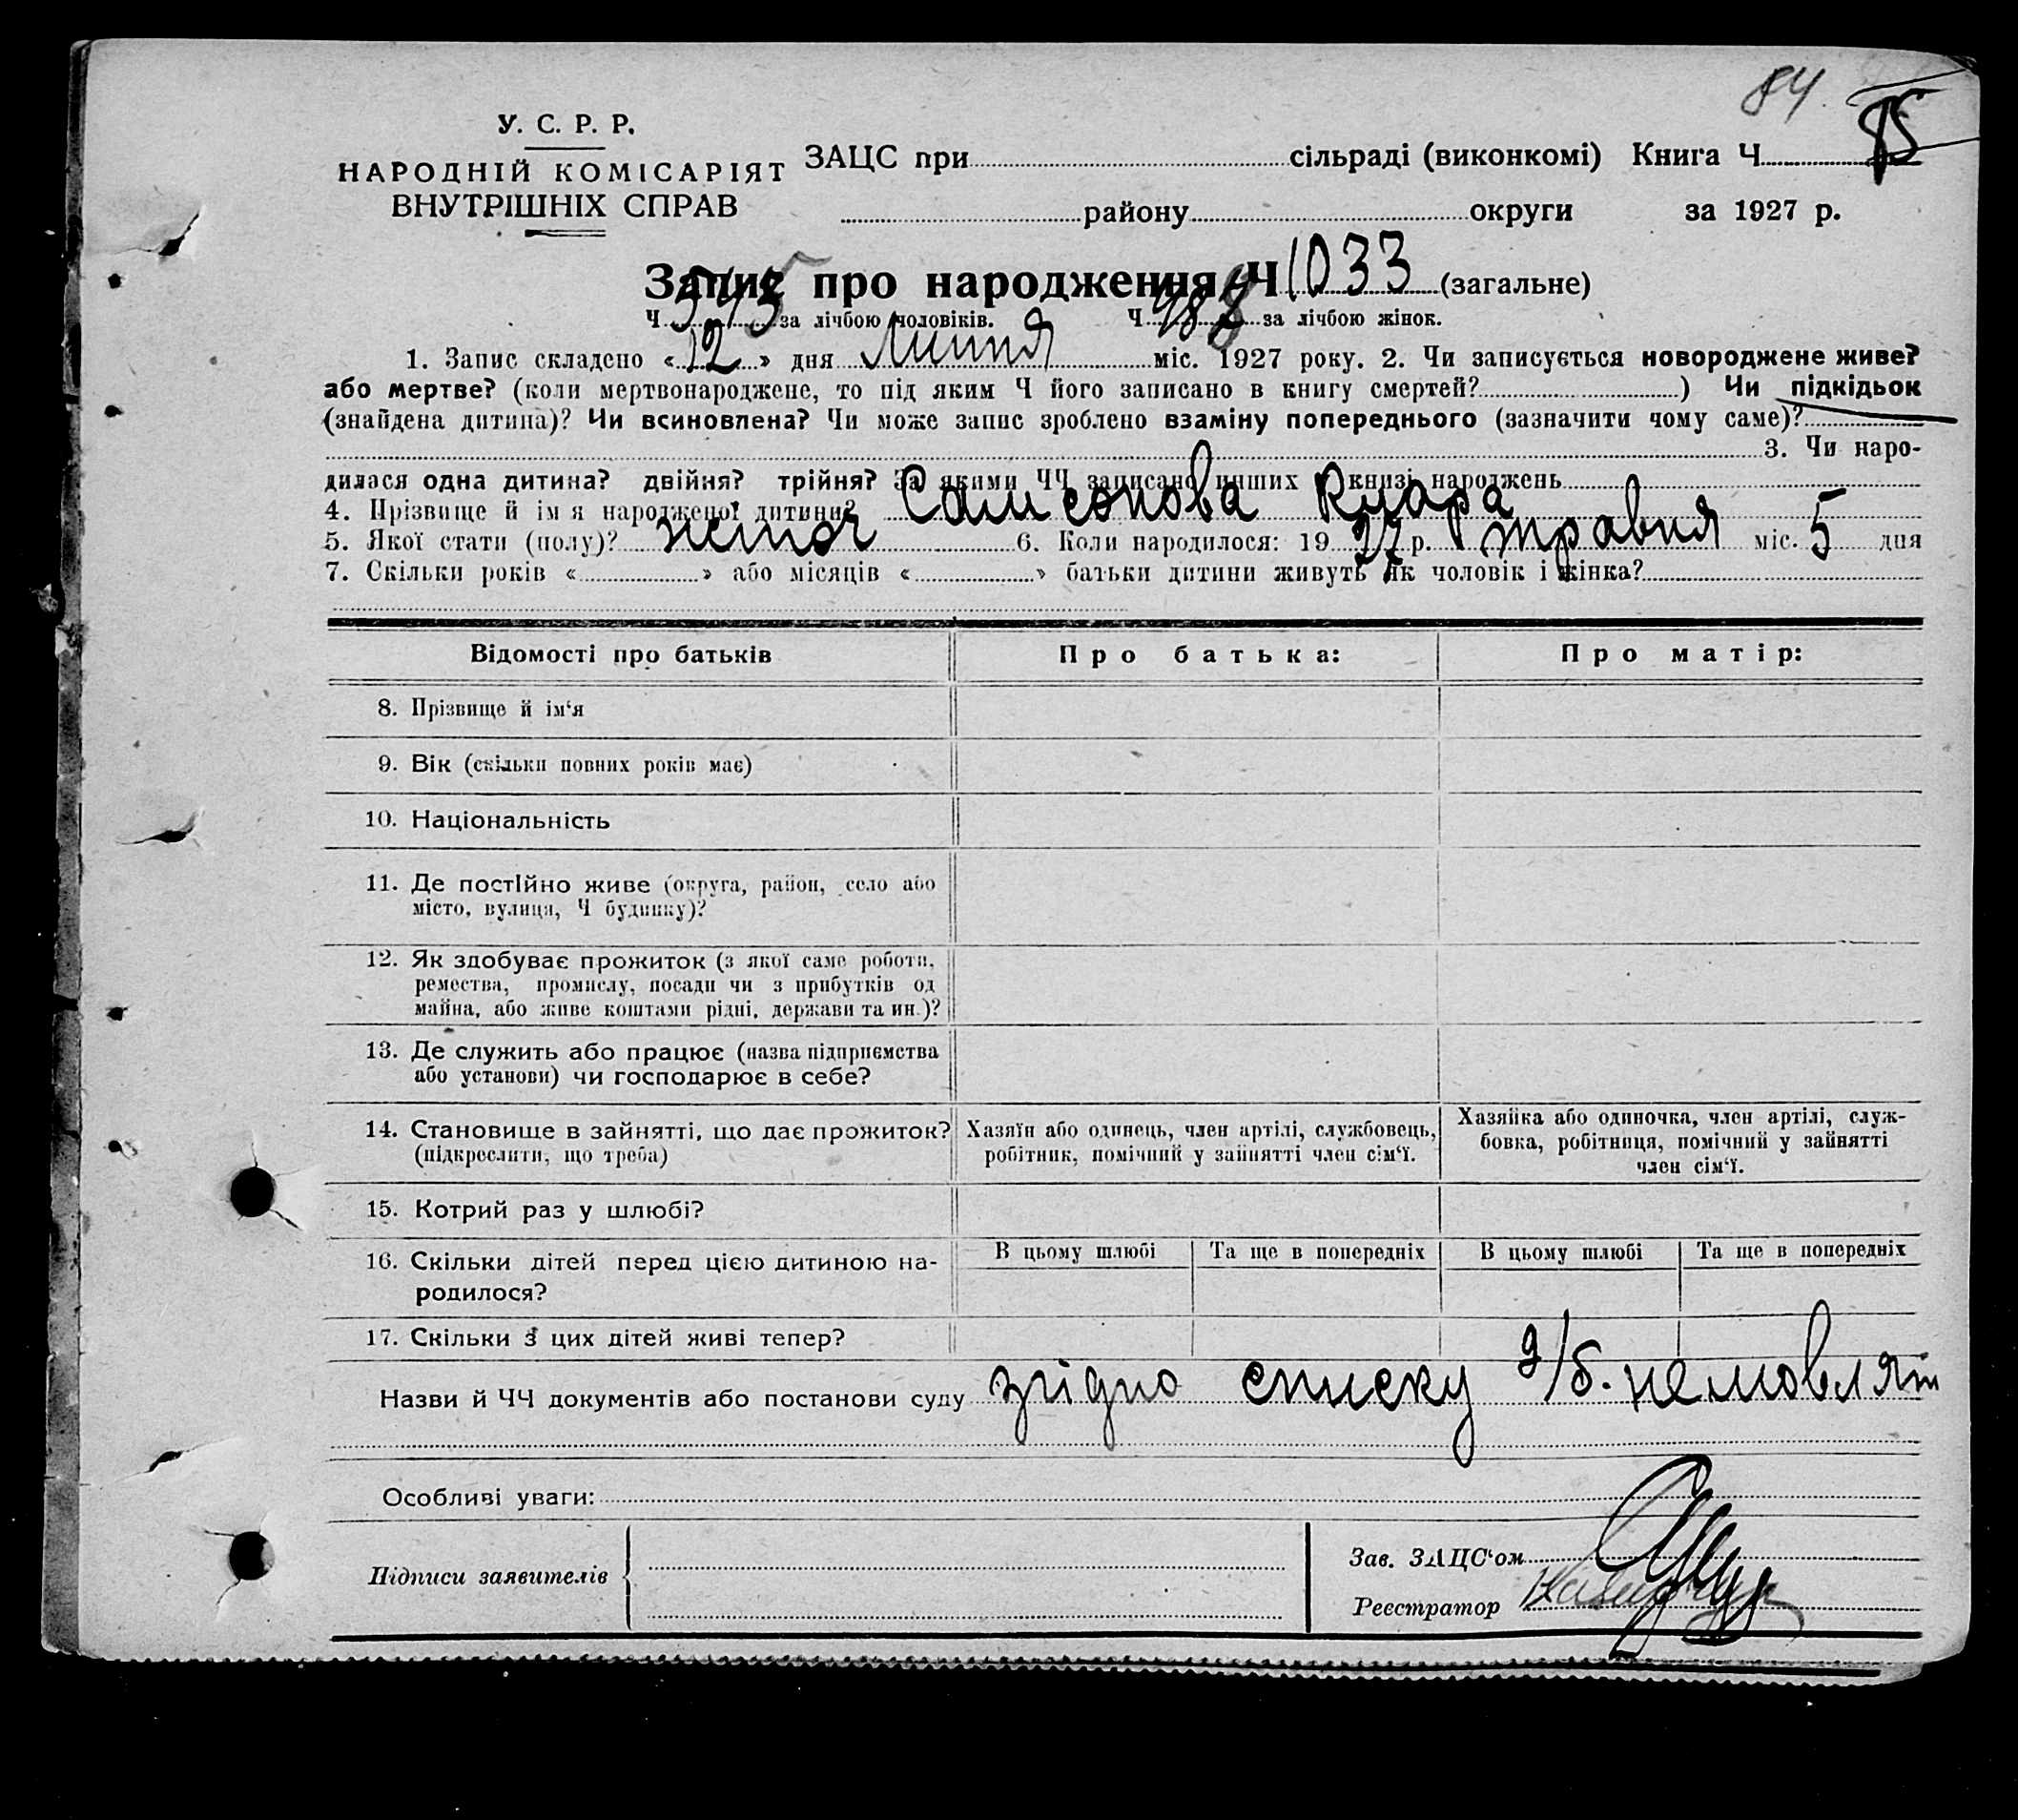 84
85
У. С. Р. Р.
НАРОДНІЙ КОМІСАРІЯТ
ВНУТРІШНІХ СПРАВ
ЗАЦС при сільраді (виконкомі) Книга Ч
району округи за 1927 р.
Запис про народження Ч 1033 (загальне)
Ч 545 за лічбою чоловіків. Ч 488 за лічбою жінок.
1. Запис складено «12» дня липня міс. 1927 року. 2. Чи записується новороджене живе?
або мертве? (коли мертвонароджене, то під яким Ч його записано в книгу смертей? ) Чи підкідьок
(знайдена дитина)? Чи всиновлена? Чи може запис зроблено взаміну попереднього (зазначити чому саме)?
3. Чи наро-
дилася одна дитина? двійня? трійня? За якими ЧЧ записано инших в книзі народжень
4. Прізвище й ім'я народженої дитини? Самсонова Клара
5. Якої стати (полу)? жіноч 6. Коли народилося: 1927 р. травня міс. 5 дня
7. Скільки років « » або місяців « » батьки дитини живуть як чоловік і жінка?
Відомості про батьків Про батька: Про матір:
8. Прізвище й ім'я
9. Вік (скільки повних років має)
10. Національність
11. Де постійно живе (округа, район, село або
місто, вулиця, Ч будинку)?
12. Як здобуває прожиток (з якої саме роботи,
ремества, промислу, посади чи з прибутків од
майна, або живе коштами рідні, держави та ин.)?
13. Де служить або працює (назва підприємства
або установи) чи господарює в себе?
14. Становище в зайнятті, що дає прожиток?
(підкреслити, що треба)
Хазяїн або одинець, член артілі, службовець,
робітник, помічний у зайнятті член сім'ї.
Хазяйка або одиночка, член артілі, служ-
бовка, робітниця, помічний у зайнятті
член сім'ї.
15. Котрий раз у шлюбі?
16. Скільки дітей перед цією дитиною на-
родилося?
В цьому шлюбі Та ще в попередніх В цьому шлюбі Та ще в попередніх
17. Скільки з цих дітей живі тепер?
Назви й ЧЧ документів або постанови суду згідно списку д/б. немовлят
Особливі уваги:
Підписи заявителів
Зав. ЗАЦС'ом
Реєстратор